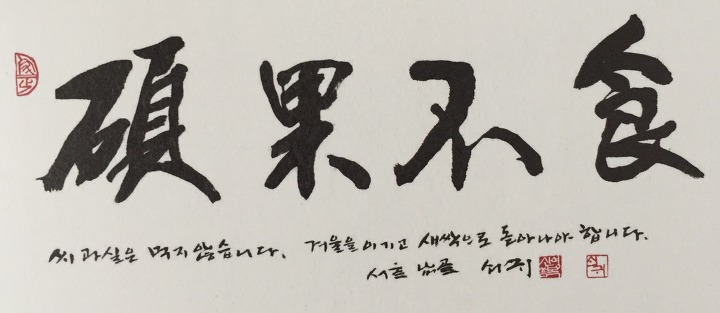 碩果不食
씨 과실은 먹지 않습니다. 겨울을 이기고 새싹으로 돌아나야 합니다.